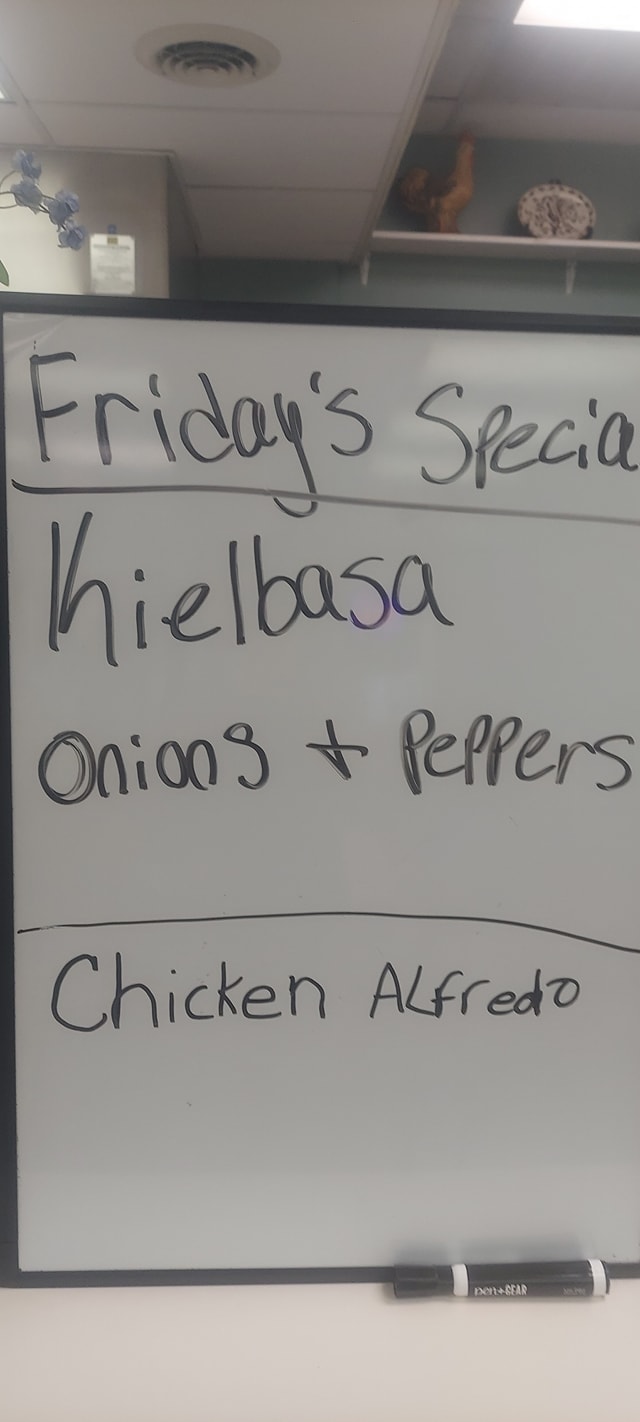 Friday's Specia
Kielbasa
Onions + Peppers
Chicken ALfredo
pen+GEAR